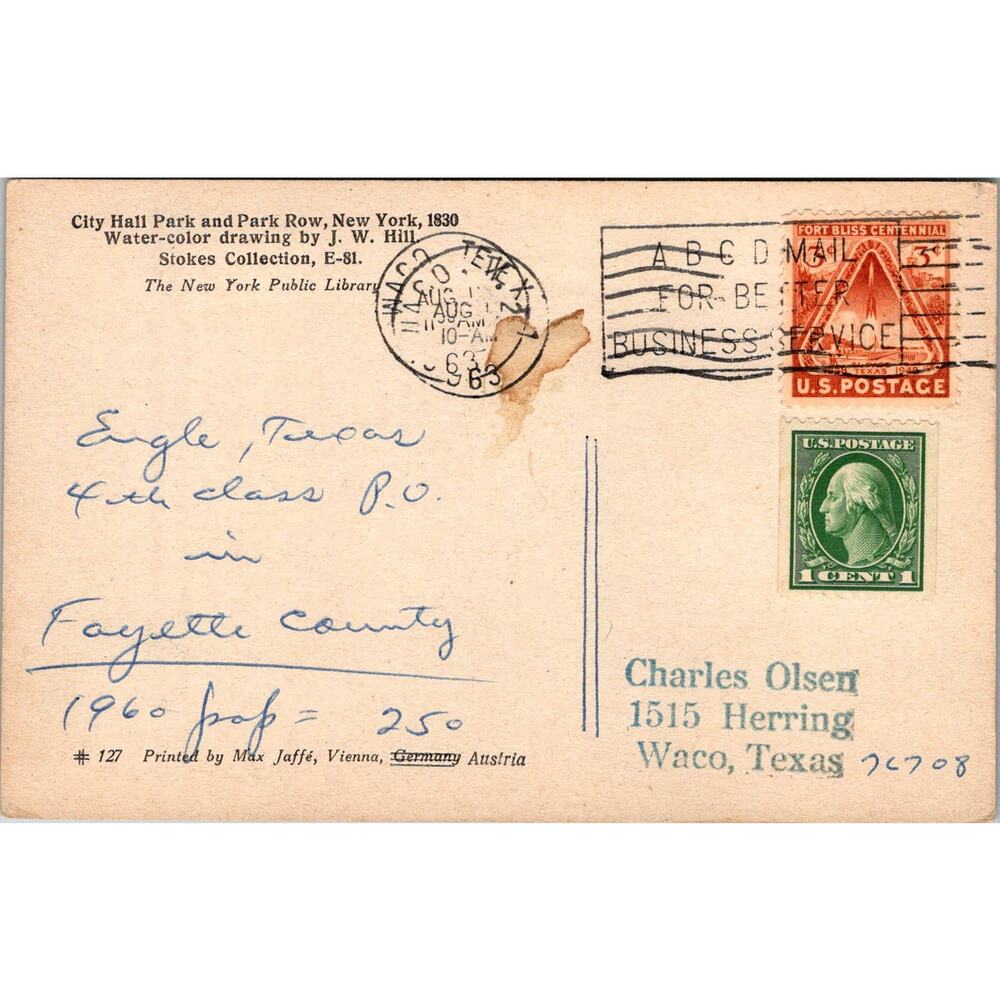 City Hall Park and Park Row, New York, 1830
Water-color drawing by J. W. Hill.
Stokes Collection, E-81.
The New York Public Library
WACO TEX
AUG
AUG
10-AM
63
963
A B C D MAIL
FOR BETTER
BUSINESS SERVICE
FORT BLISS CENTENNIAL
3¢ 3¢
TEXAS 1948
U.S. POSTAGE
U.S. POSTAGE
1 CENT 1
Engle, Texas
4th class P.O.
in
Fayette County
1960 pop = 250
# 127 Printed by Max Jaffé, Vienna, Germany Austria
Charles Olsen
1515 Herring
Waco, Texas 76708